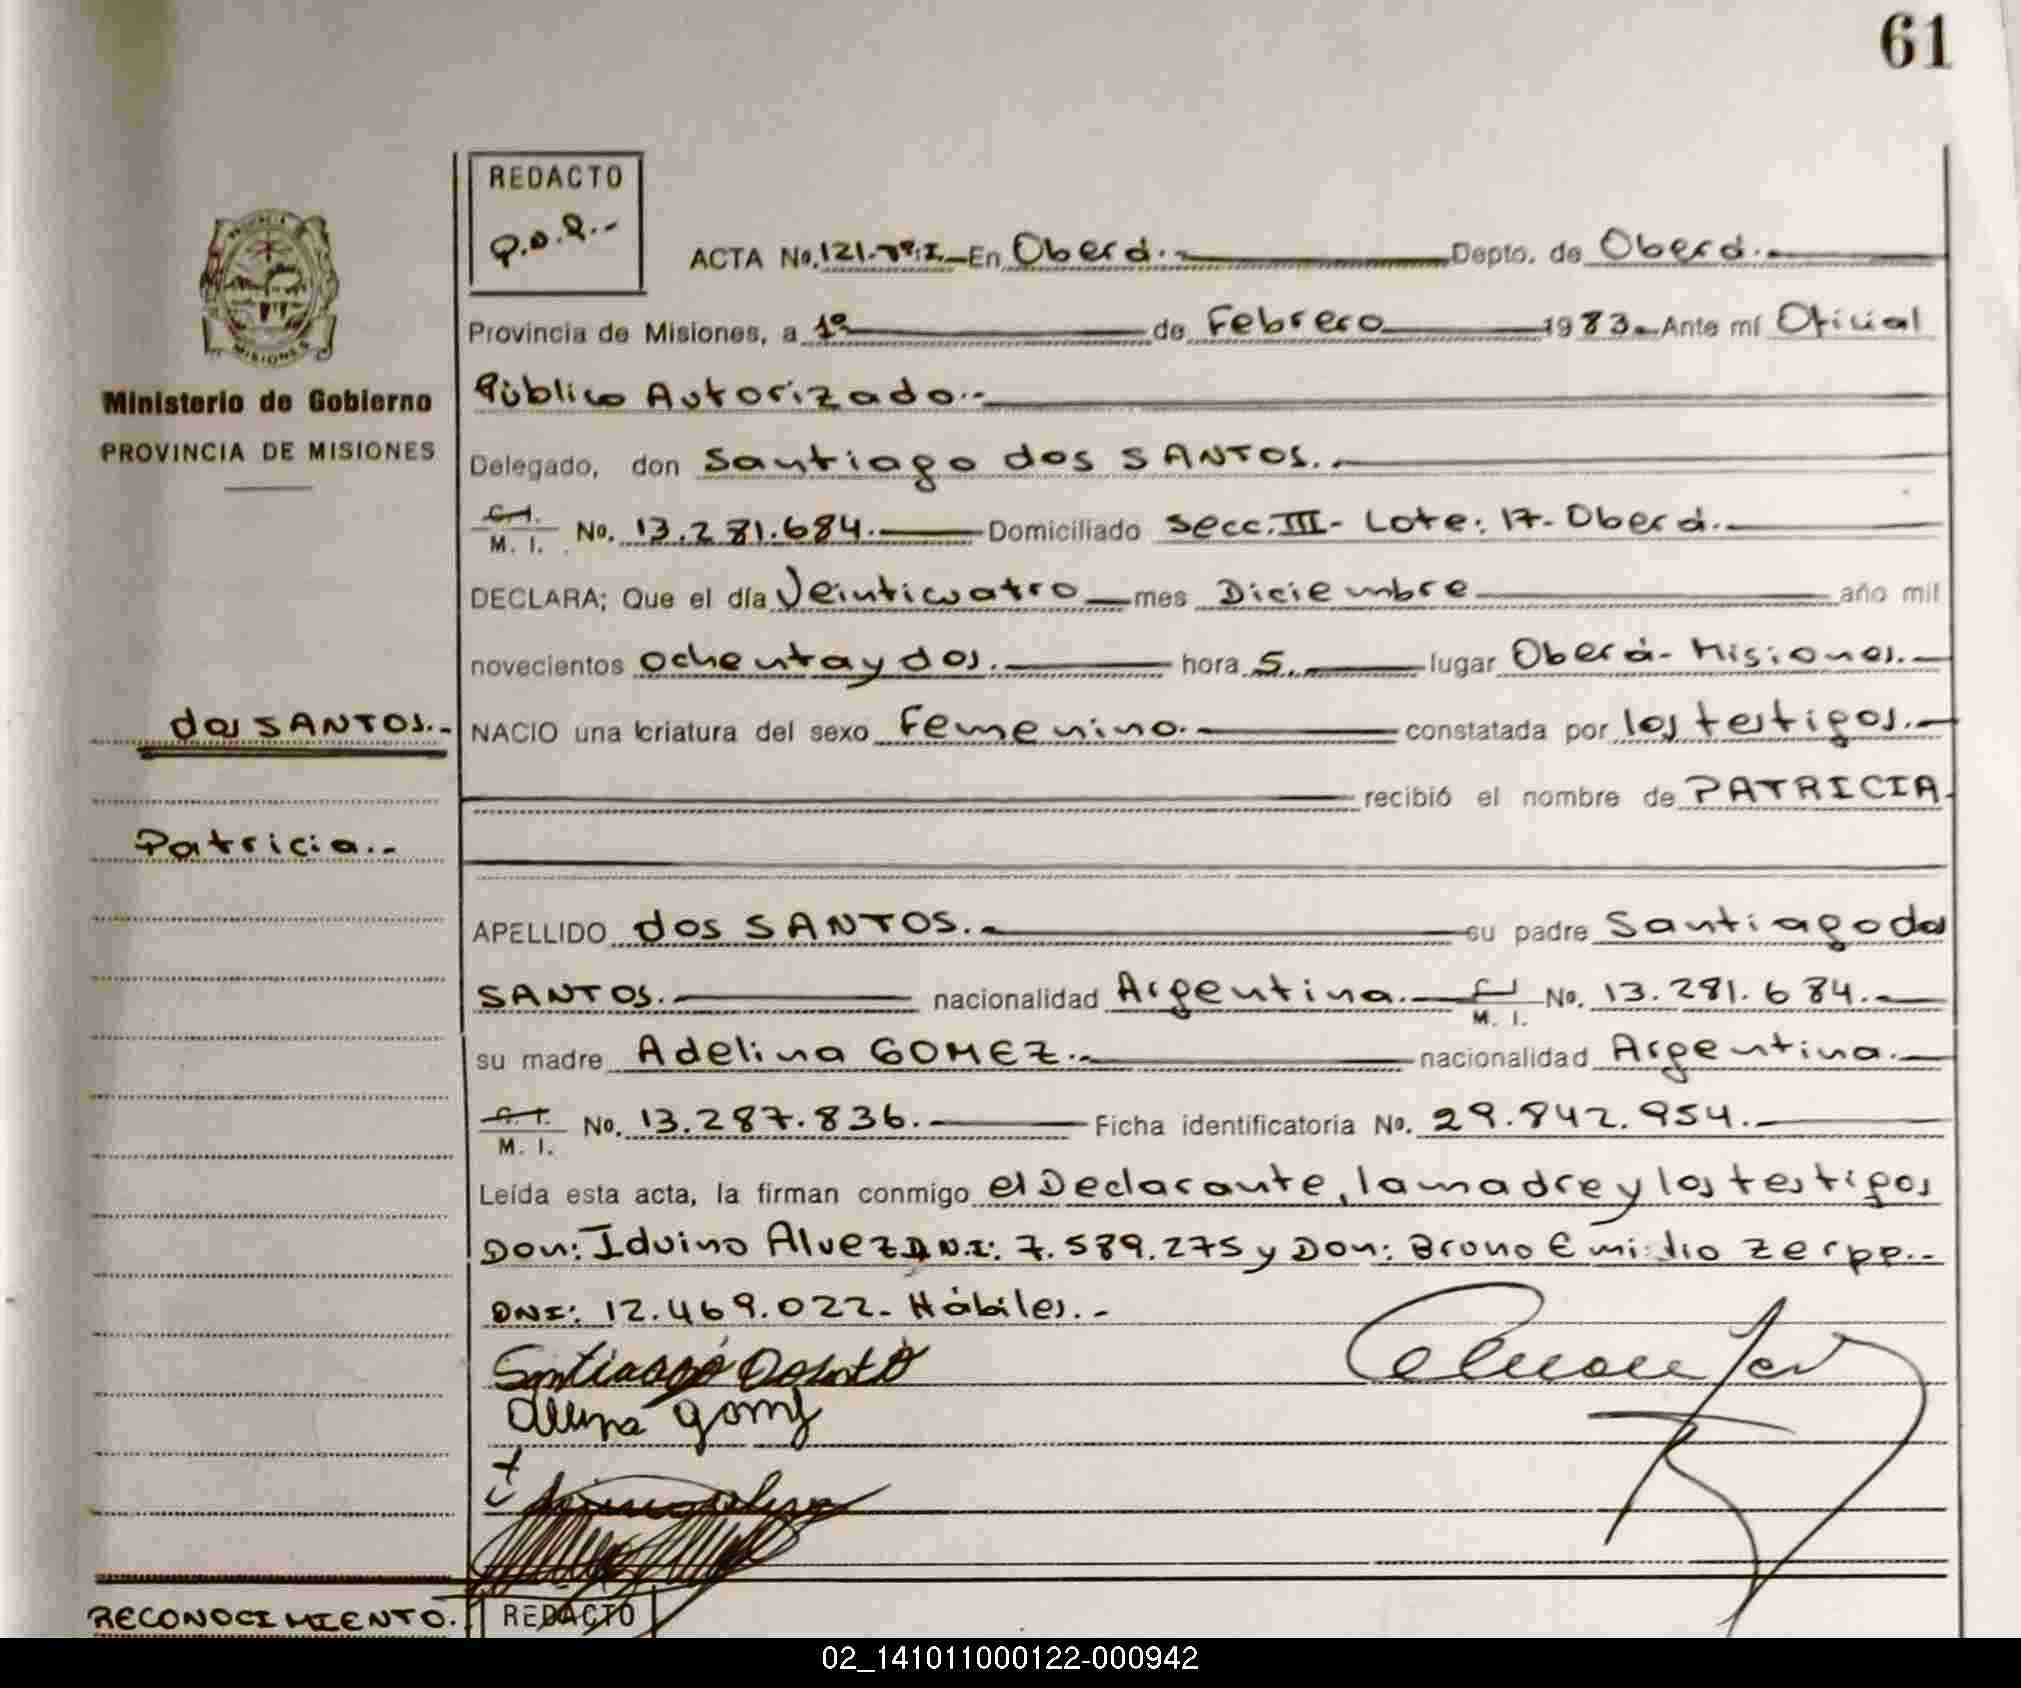 61
REDACTO
ACTA No. 121-Tº:I. En Oberá.- Depto. de Oberá.-
Provincia de Misiones, a 1º de Febrero 1983.- Ante mí Oficial
Público Autorizado.-
Delegado, don Santiago dos SANTOS.-
C.I. M. I. No. 13.281.684.- Domiciliado Secc. III- Lote: 17- Oberá.-
DECLARA; Que el día Veinticuatro mes Diciembre año mil
novecientos ochenta y dos.- hora 5.- lugar Oberá- Misiones.-
NACIO una criatura del sexo Femenino.- constatada por los testigos.-
recibió el nombre de PATRICIA.
APELLIDO dos SANTOS.- su padre Santiago dos
SANTOS.- nacionalidad Argentina.- M. I. No. 13.281.684.-
su madre Adelina GOMEZ.- nacionalidad Argentina.-
C.I. M. I. No. 13.287.836.- Ficha identificatoria No. 29.842.954.-
Leída esta acta, la firman conmigo el Declarante, la madre y los testigos
Don: Iduino Alvez D.N.I: 7.589.275 y Don: Bruno Emidio Zerpp.-
DNI: 12.469.022- Hábiles.-
PROVINCIA
MISIONES
Ministerio de Gobierno
PROVINCIA DE MISIONES
dos SANTOS.-
Patricia.-
RECONOCIMIENTO.
REDACTO
02_141011000122-000942